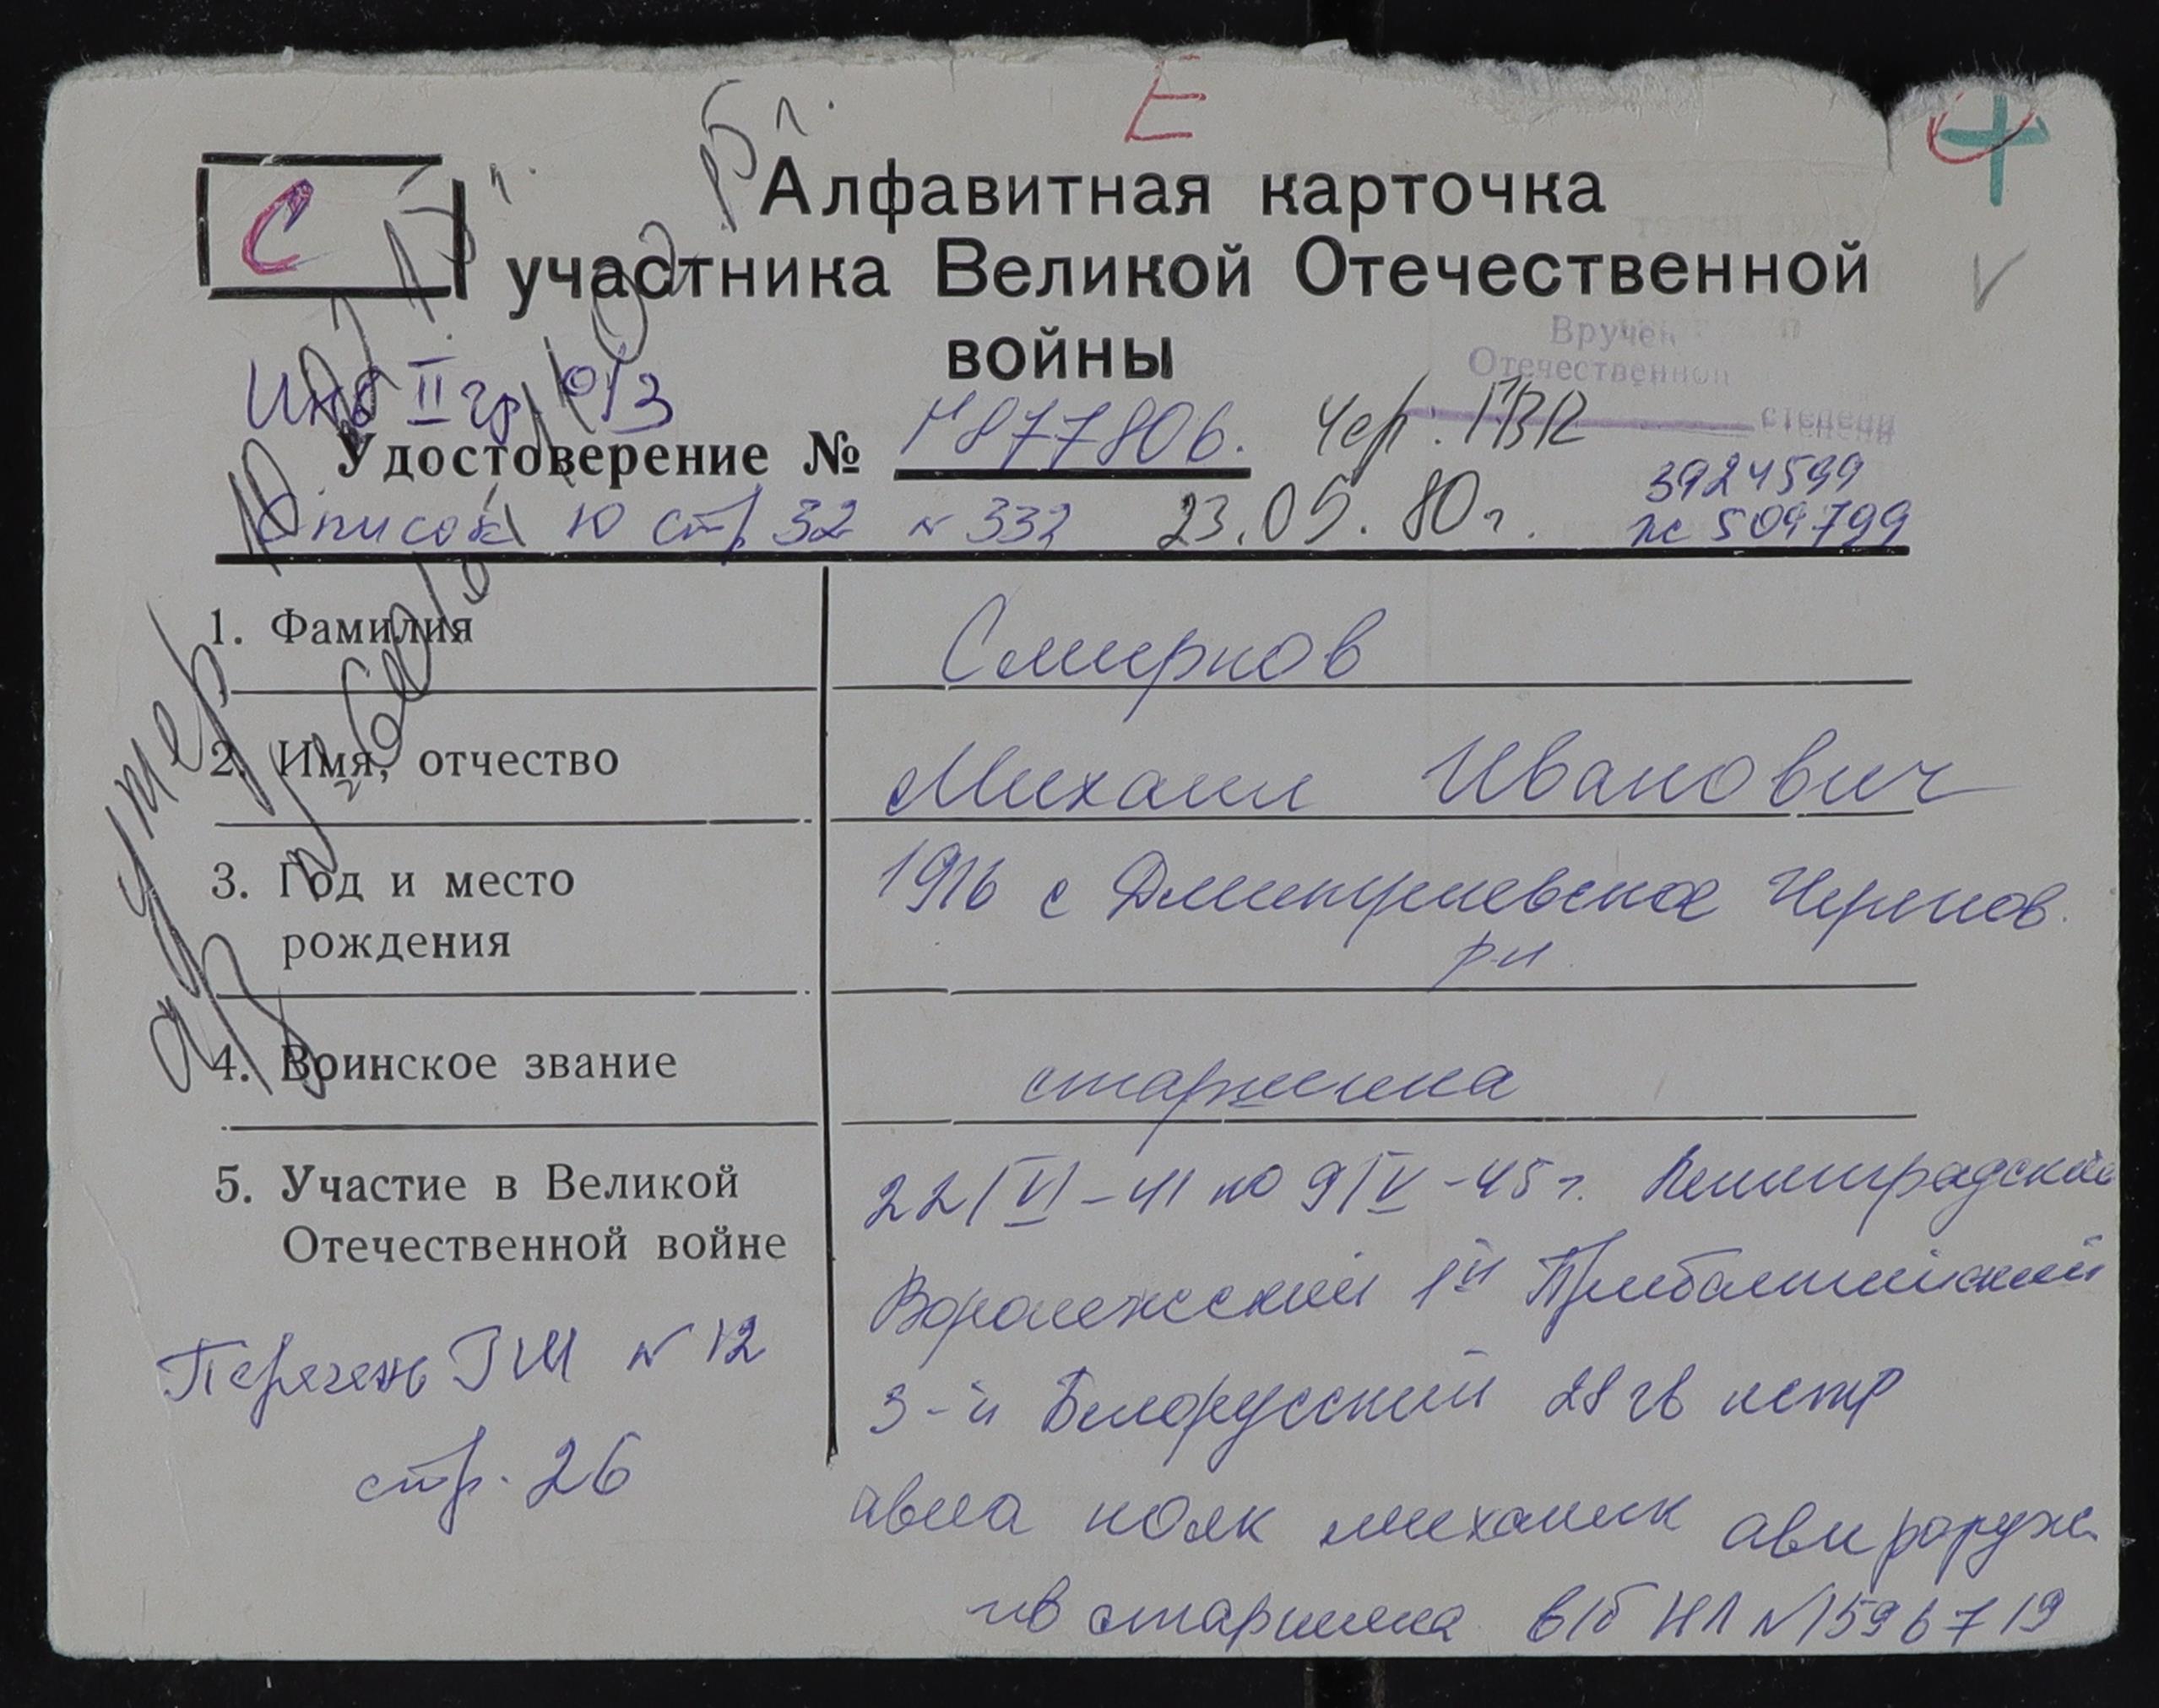 Е
С
Алфавитная карточка
участника Великой Отечественной
войны
Вручен
Отечественной
степени
Инв II гр. о/з
Удостоверение № 877806.
Чер. ГВК
3924599
Список Ю стр 32 № 332 23.05.80 г. пс 509799
умер
1. Фамилия Смирнов
2. Имя, отчество Михаил Иванович
3. Год и место рождения 1916 с Дмитриевское Черепов.
р-н
4. Воинское звание старшина
5. Участие в Великой Отечественной войне 22/VI-41 по 9/V-45 г. Ленинградский
Воронежский 1й Прибалтийский
Перечень ГШ № 12
3-й Белорусский 28 гв истр
стр. 26
авиа полк механик
гв старшина в/б НЛ № 1596719